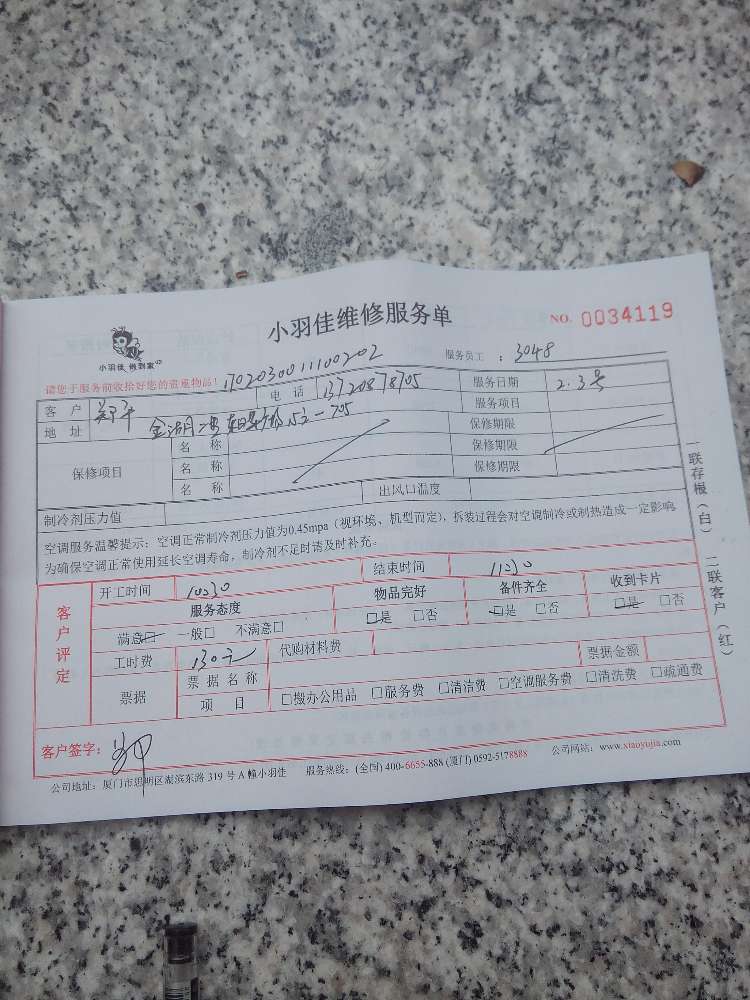 小羽佳维修服务单
NO. 0034119
小羽佳 做到家
服务员工：3048
请您于服务前收拾好您的贵重物品！170203001100202
客户 电话 13720878705 服务日期 2.3号
地址 金湖 服务项目
保修项目 名称 保修期限
名称 保修期限
名称 保修期限
制冷剂压力值 出风口温度
空调服务温馨提示：空调正常制冷剂压力值为0.45mpa（视环境、机型而定），拆装过程会对空调制冷或制热造成一定影响。
为确保空调正常使用延长空调寿命，制冷剂不足时请及时补充。
客户评定
开工时间 10:30 结束时间 11:30
服务态度 物品完好 备件齐全 收到卡片
满意□ 一般□ 不满意□ □是 □否 □是 □否 □是 □否
工时费 130元 代购材料费 票据金额
票据 票据名称
项目 □搬办公用品 □服务费 □清洁费 □空调服务费 □清洗费 □疏通费
客户签字：
公司地址：厦门市思明区湖滨东路 319 号 A 幢小羽佳 服务热线：(全国) 400-6655-888 (厦门) 0592-5178888 公司网站：www.xiaoyujia.com
一联存根（白） 二联客户（红）